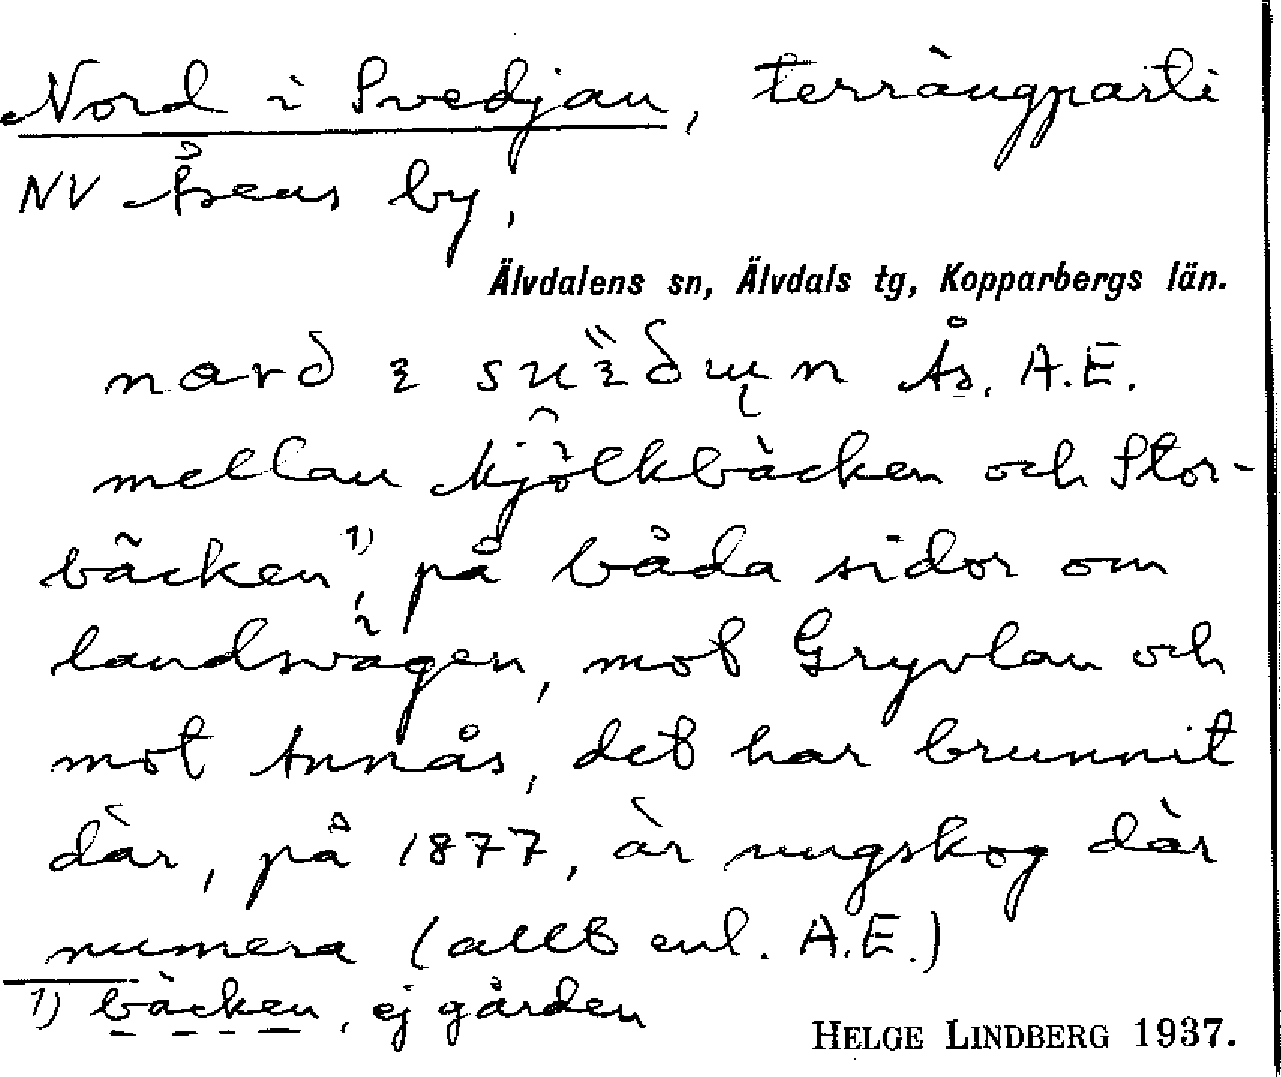 Nord i Svedjan, terrängparti
NV Åsens by,
Älvdalens sn, Älvdals tg, Kopparbergs län.
Ås. A.E.
mellan Mjölkbäcken och Stor-
bäcken¹⁾, på båda sidor om
landsvägen, mot Gryvlan och
mot Annås, det har brunnit
där, på 1877, är ungskog där
numera (allt enl. A.E.)
1) bäcken, ej gården
HELGE LINDBERG 1937.